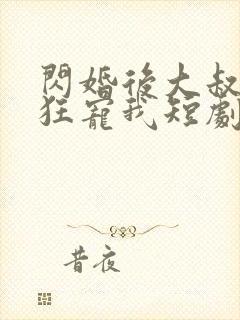 閃婚後大叔
狂寵我短劇
昔夜